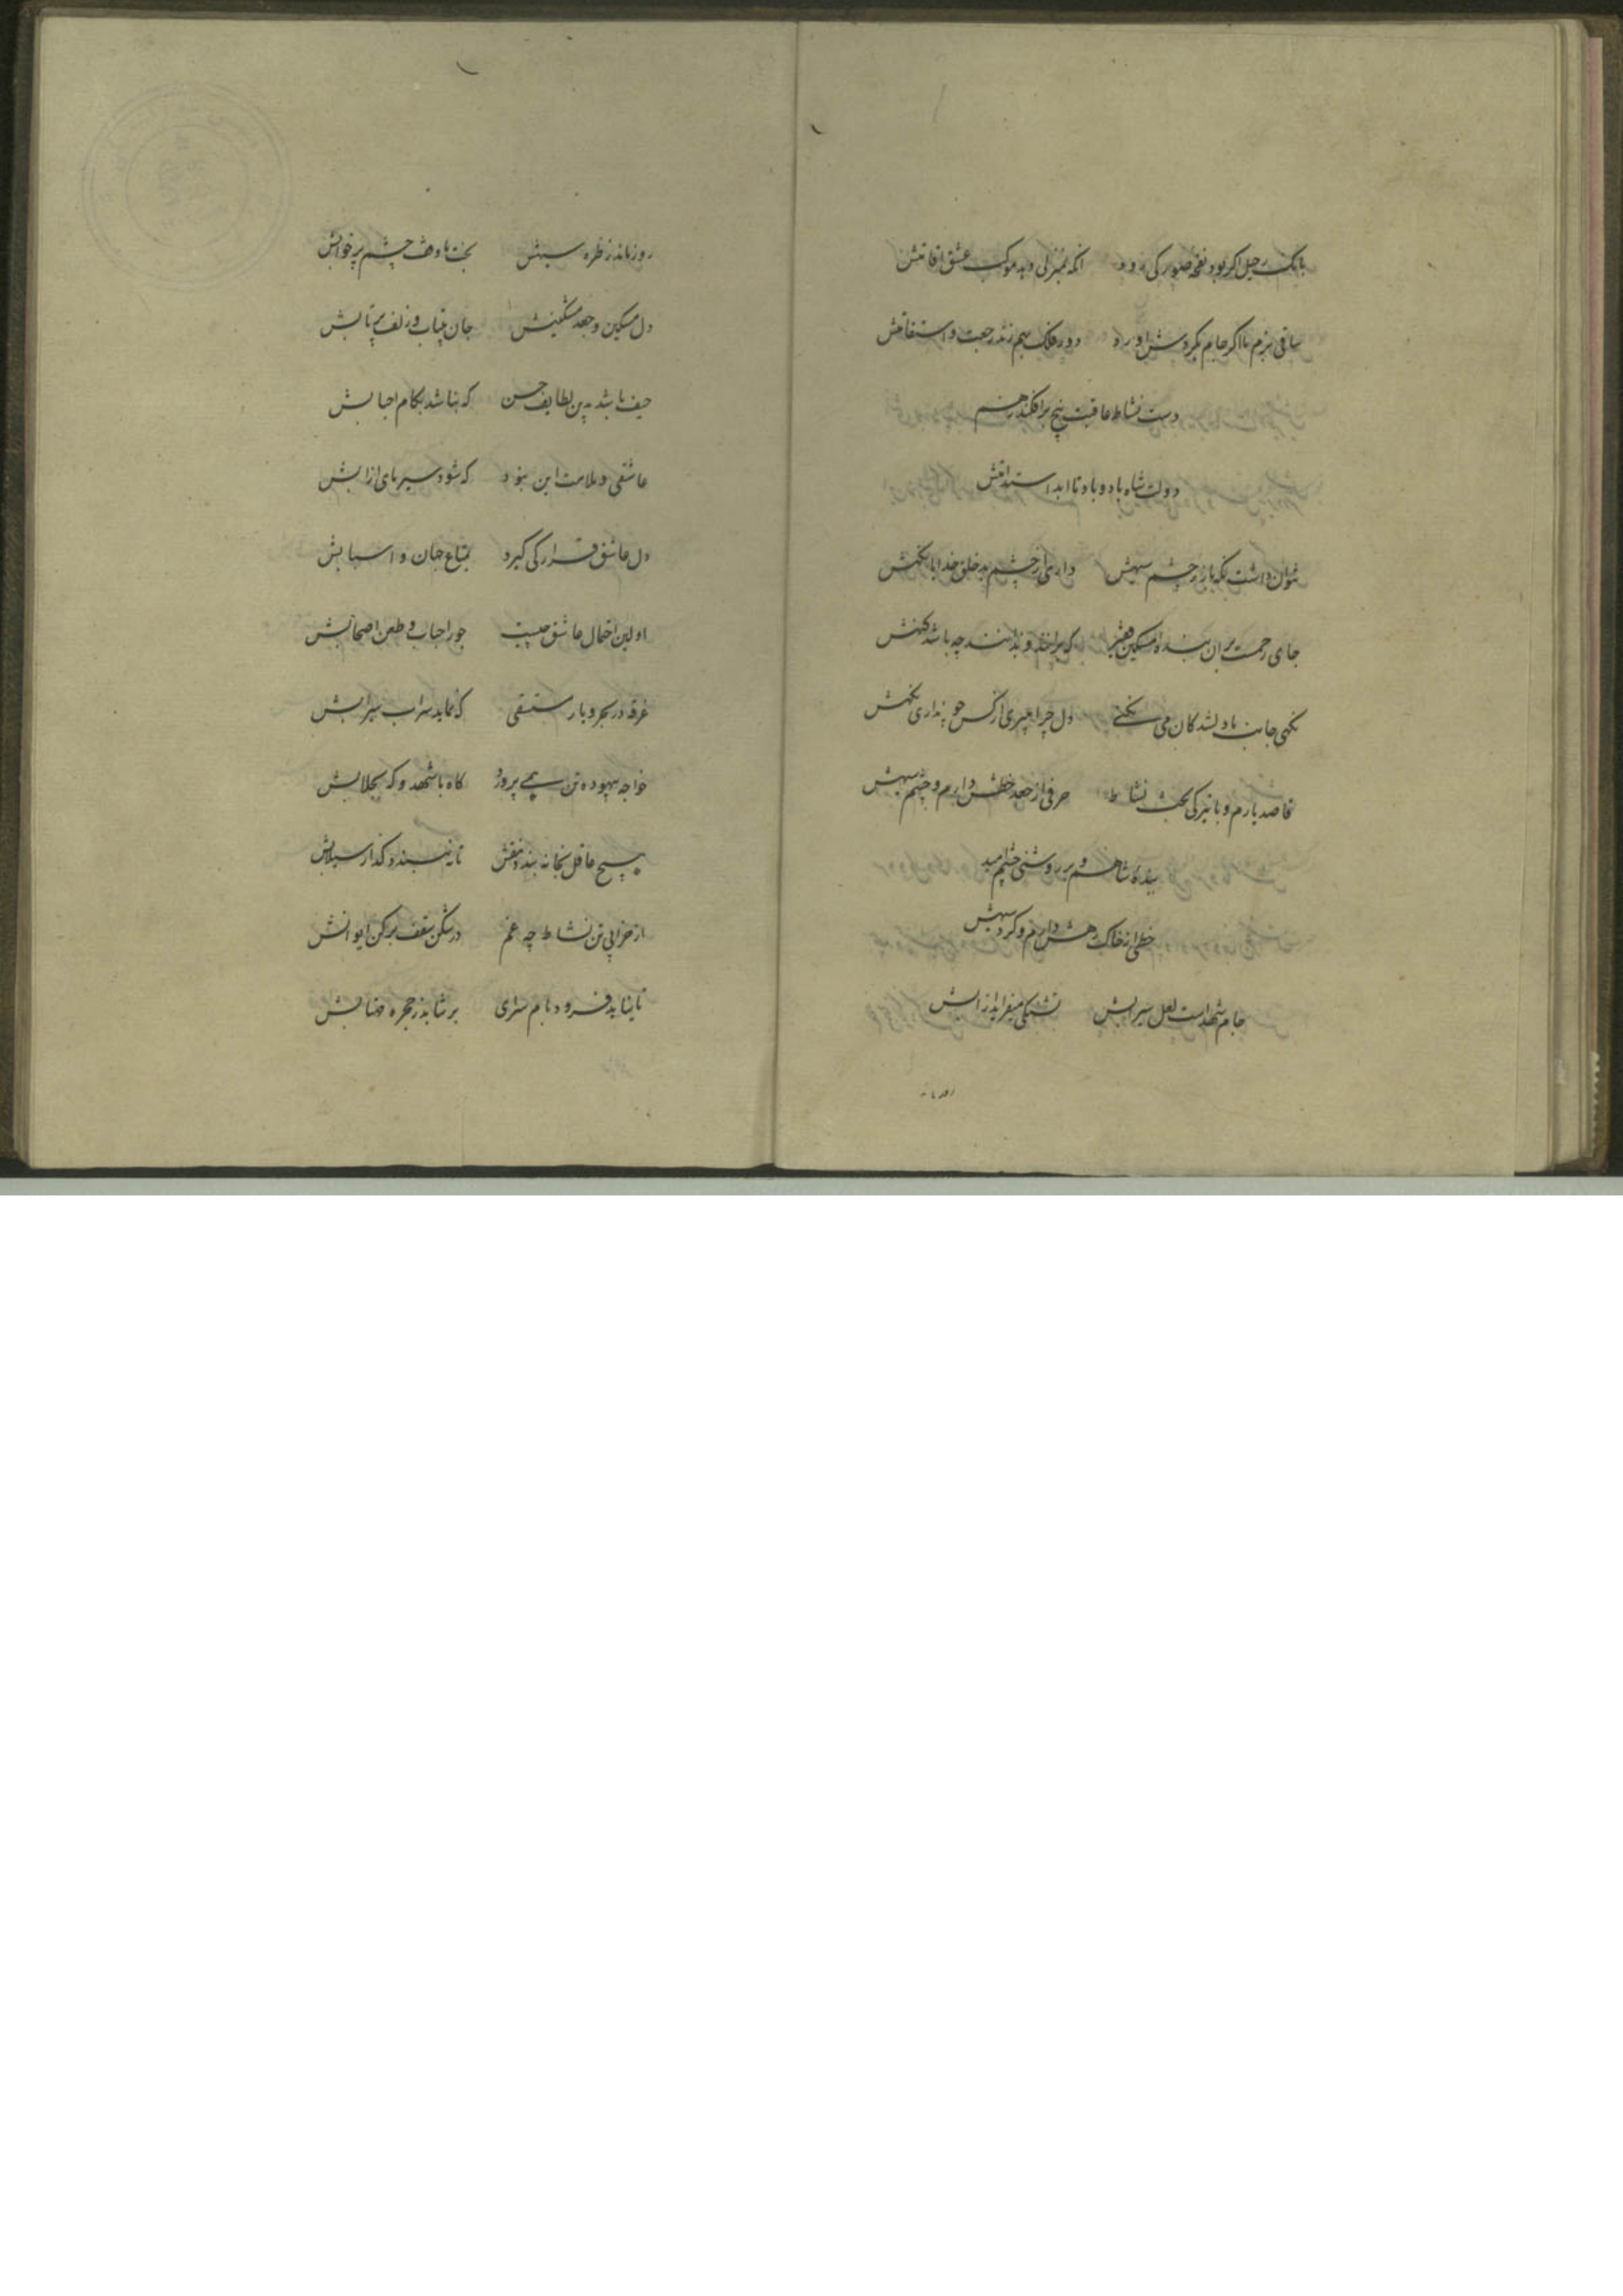 بانک رحیل اکر بود نفخه صور کی رود انکه بمنزلی دهد موکب عشق اقامتش
ساقی بزم ما اکر جام بکردش اورد دور فلک بهم زند رجعت و استقامتش
دست نشاط عاقبت بیخ برافکند زهم
دولت شاه باد و باد تا ابد استدامتش
نتوان داشت نکه باز ز چشم سیهش داری از چشم بد خلق خدایا نکهش
جای رحمت بران بنده مسکین فقیر که برانند و ندانند چه باشد کنهش
نکهی جانب دلشدکان می نکنی دل چرا میبری از کس چو نداری نکهش
قاصد یارم و با تیرکی بخت نشاط حرفی از جعد خطش دارم و چشم سیهش
بنده شاهم و بر روشنی چشم امید
خطی از خاک رهش دارم و کرد سپهش
جام شهد است لعل سیرابش تشنکی میفزاید از ابش
روز ماند
روز ماند ز طره سیهش بخت ما وقف چشم پر خوابش
دل مسکین و جعد مشکینش جان بیتاب و زلف پرتابش
حیف باشد بدین لطایف حسن که نباشد بکام احبابش
عاشقی و ملامت این نبود که شود سیر ماهی از ابش
دل عاشق قرار کی کیرد بمتاع جهان و اسبابش
اولین احتمال عاشق چیست جور احباب و طعن اصحابش
غرقه در بحر و بار مستسقی که نماید سراب سیرابش
خواجه بیهوده تن همی پرورد کاه با شهد و که بجلابش
هیچ عاقل بخانه بندد نقش تا نبندد کذار سیلابش
از خرابی تن نشاط چه غم درشکن سقف برکن ابوابش
تا نیاید فرود بام سرای بر نتابد ز حجره مهتابش